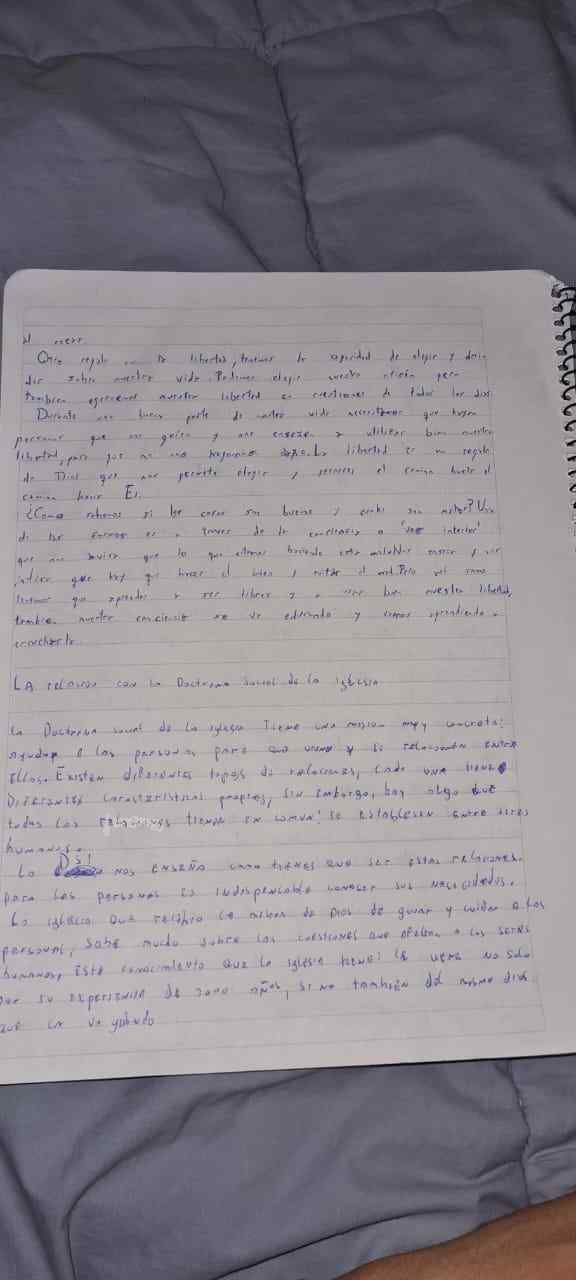 al nacer.
Otro regalo es la libertad, tenemos la capacidad de elegir y deci-
dir sobre nuestra vida. Podemos elegir nuestro oficio pero
tambien ejercemos nuestra libertad en cuestiones de todos los dias
Durante una buena parte de nuestra vida necesitamos que hayan
personas que nos guien y nos enseñen a utilizar bien nuestra
libertad, para que no nos hagamos daño. La libertad es un regalo
de Dios que nos permite elegir y recorrer el camino hacia el
camino hacia El.
¿Como sabemos si las cosas son buenas y cuales son malas? Una
de las formas es a traves de la conciencia o "voz interior"
que nos avisa que lo que estamos haciendo esta mal
indica que hay que hacer el bien y evitar el mal. Pero asi como
tenemos que aprender a ser libres y a usar bien nuestra libertad,
tambien nuestra conciencia se va educando y vamos aprendiendo a
escucharla.
LA relacion con la Doctrina social de la iglesia
La Doctrina social de la iglesia Tiene una mision muy concreta:
ayudar a las personas para que vivan y se relacionen entre
Ellos. Existen diferentes tipos de relaciones, cada una tiene
Diferentes caracteristicas propias, sin embargo, hay algo que
todas las relaciones tienen en comun: se establesen entre seres
humanos.
La DSI nos enseña como tienes que ser estas relaciones.
para las personas es indispensable conocer sus necesidades.
La iglecia que recibio la mision de Dios de guiar y cuidar a las
personas, sabe mucho sobre las cuestiones que afectan a los seres
humanos, Este conocimiento que la iglesia tiene: le viene no solo
por su experiencia de 2000 años, si no también del mismo dios
que la va guiando